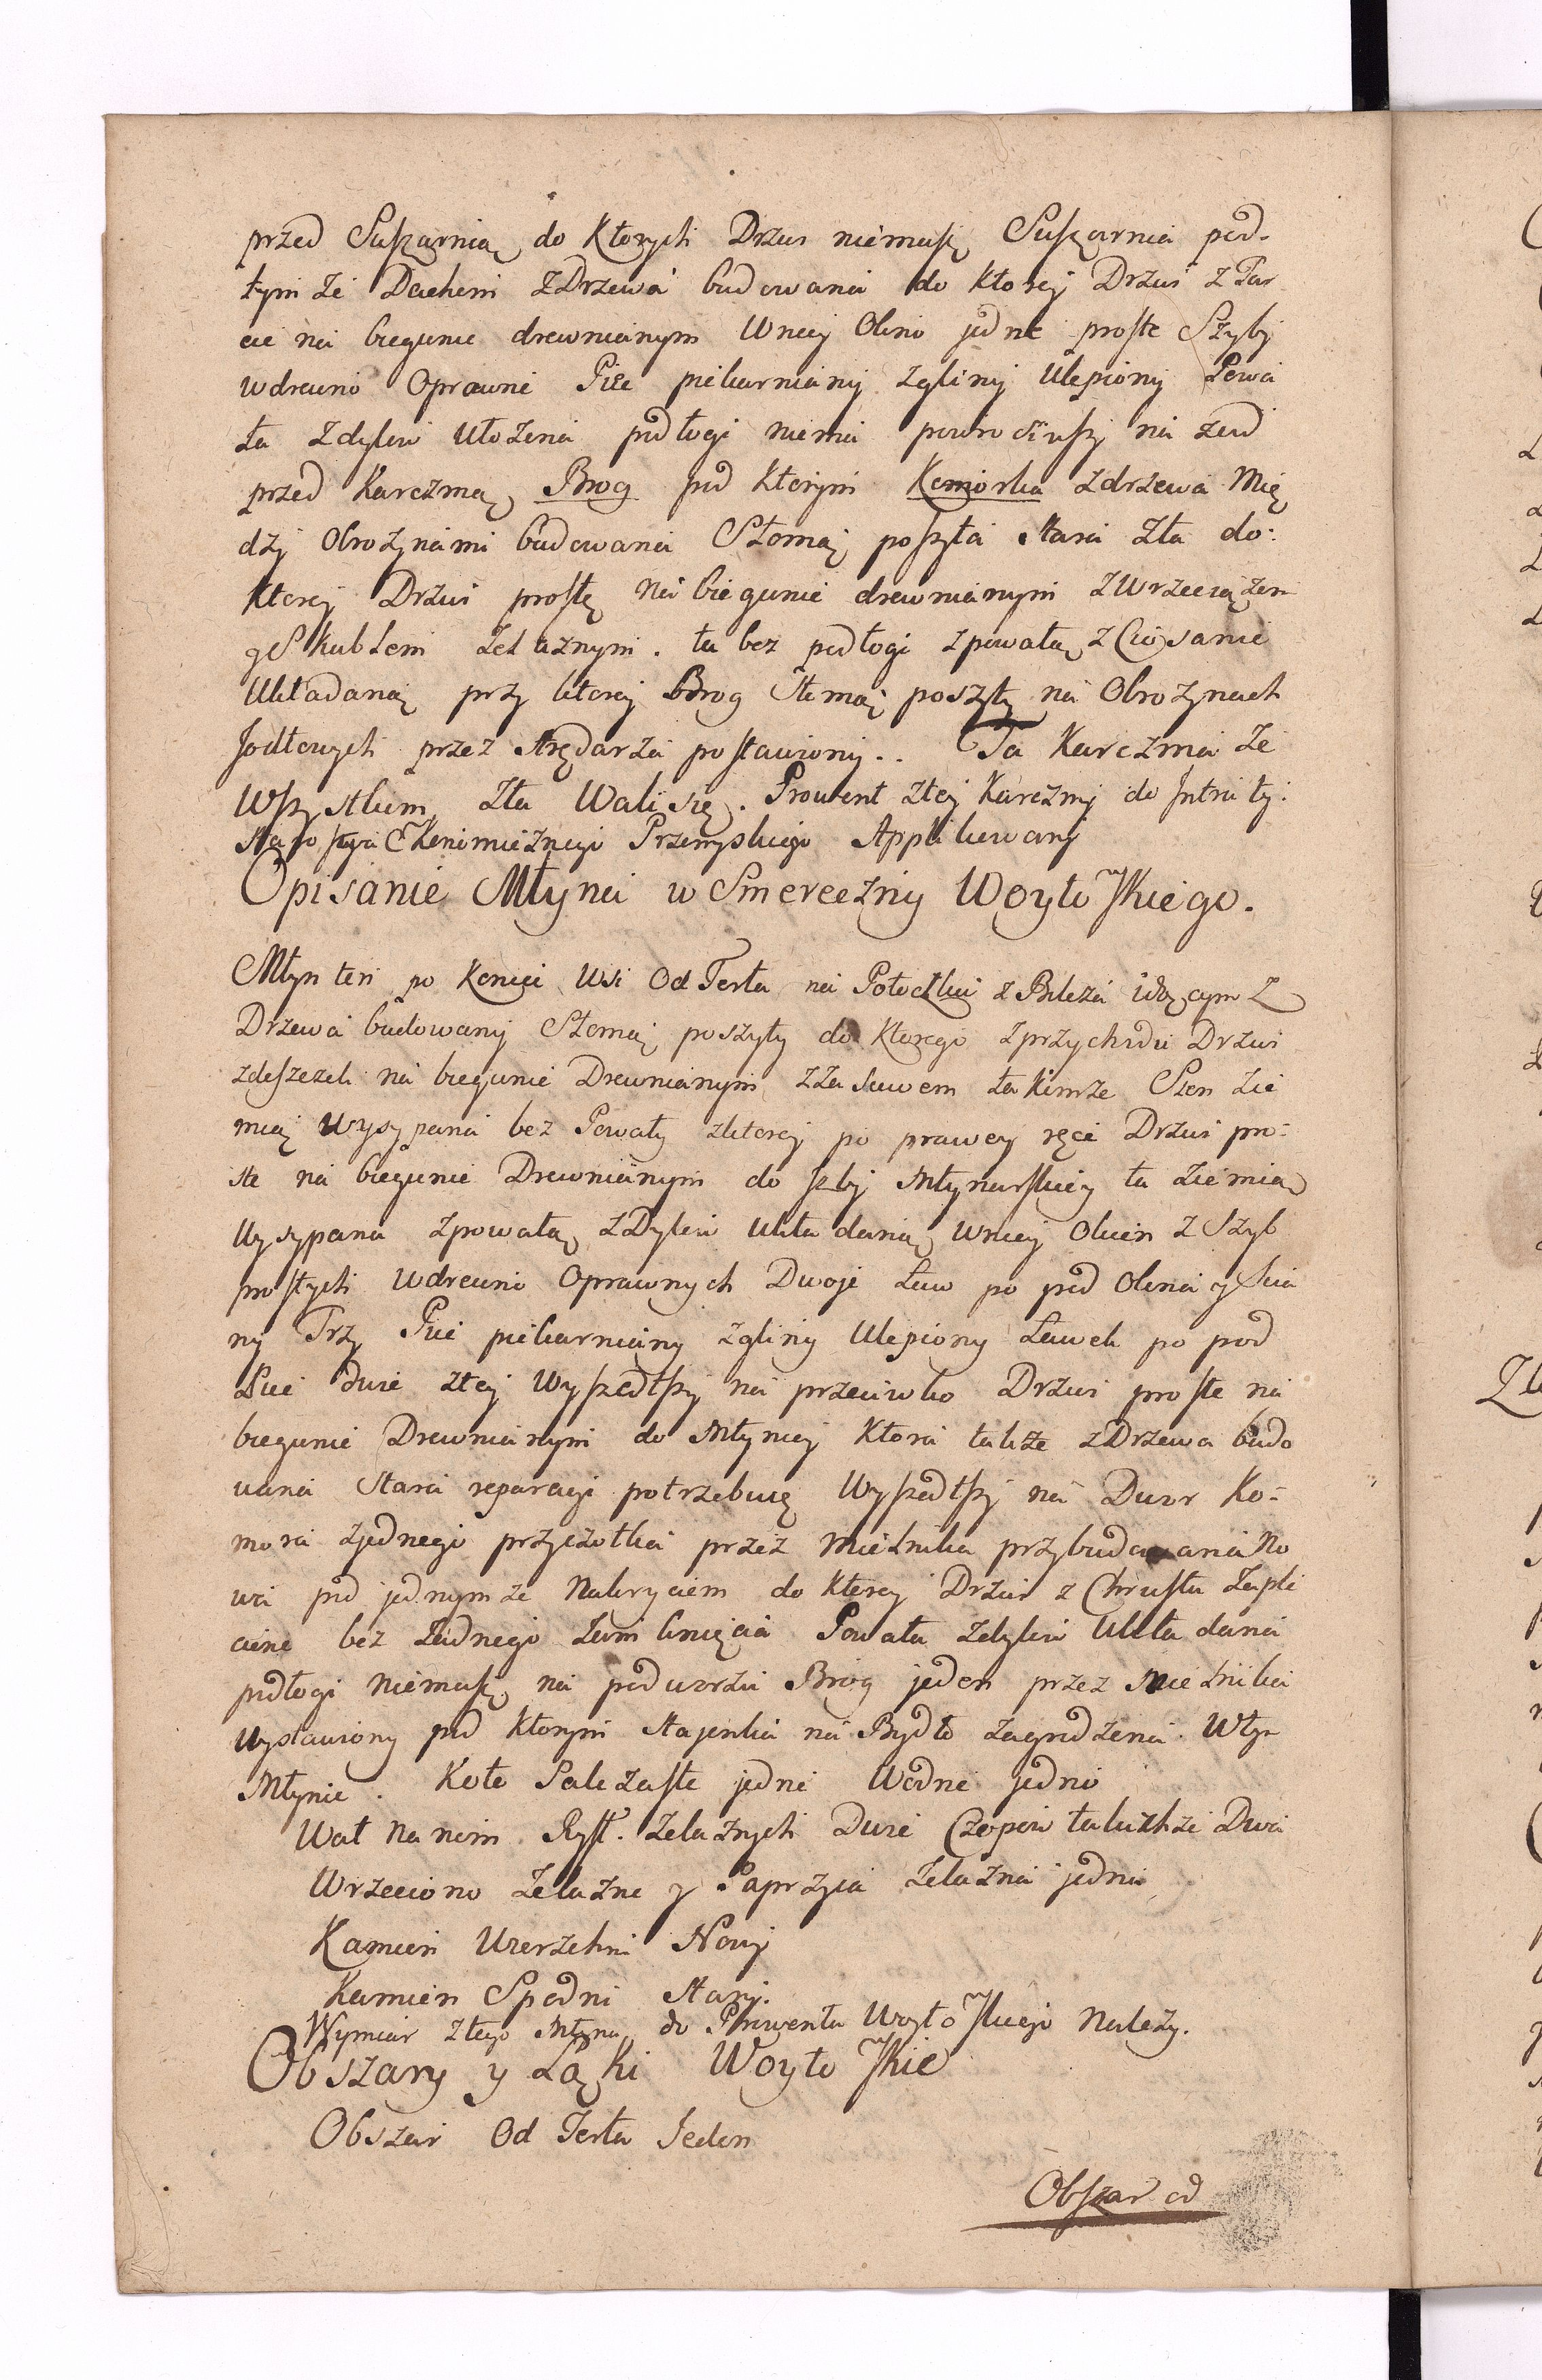 przed Suszarnią do Ktorych Drzwi niemasz Suszarnia pod-
tym że Dachem z Drzewa budowana do Ktorej Drzwi z Tar
cic na biegunie drewnianym Wniey Okno jedne proste Szyby
wdrewno Oprawne Piec piekarniany zgliny Ulepiony Powa
ła zdylow Ułożona podłogi niema powrociwszy na zad
przed Karczmą, Brog pod Ktorym Komorka zdrzewa Mię
dzy Obrożynami budowana Słomą poszyta stara zła do-
Ktorej Drzwi proste na biegunie drewnianym z Wrzeciązem
y Skoblem żelaznym. ta bez podłogi z powałą z Ciosanic
Układaną przy ktorej Brog Słomą poszyty na Obrożynach
Jodłowych przez Arędarza postawiony.. Ta Karczma ze
Wszystkim zła Wali się. Prowent ztey Karczmy do Intraty
Starostwa Ekonomicznego Przemyskiego Applikowany
Opisanie Młyna w Smereczny Woytowskiego.
Młyn ten po Koniec Wsi Od Terła na Potoczku z Boleza idącym Z
Drzewa budowany Słomą poszyty do Ktorego z przychodu Drzwi
zdeszczek na biegunie Drewnianym z Zasuwem takimże Sien Zie
mią Wysypana bez Powały zktorej po prawey ręce Drzwi pro-
ste na biegunie Drewnianym do Izby Młynarskiey ta Ziemią
Wysypana zpowałą z Dylow Układaną, Wniey Okien z Szyb
prostych Wdrewno Oprawnych Dwoje Ław po pod Okna y Scia
ny Trzy Piec piekarniany zgliny Ulepiony Ławek po pod
Piec dwie ztey Wyszedłszy na przeciwko Drzwi proste na
biegunie Drewnianym do Młynicy Ktora także z Drzewa budo
wana Stara reparacyi potrzebuię Wyszedłszy na Dwor Ko-
mora zjednego przyczołka przez Mielnika przybudowana No
wa pod jednymże Nakryciem do Ktorej Drzwi z Chrustu Zaple
cione bez żadnego Zamknięcia Powała zdylow Układana
podłogi niemasz na podworzu Brog jeden przez Mielnika
Wystawiony pod Ktorym Stajenka na Bydło zagrodzona. Wtym
Młynie. Koło Palczaste jedne Wodne jedno
Wał Nanim Ryf. Żelaznych Dwie Czopow takichże Dwa
Wrzeciono Żelazne y Paprzyca Żelazna jedna
Kamien Wierzchni Nowy
Kamien Spodni Stary.
Wymiar ztego Młyna do Prowentu Woytowskiego Należy.
Obszary y Łąki Woytowskie
Obszar Od Terła Jeden
Obszar od